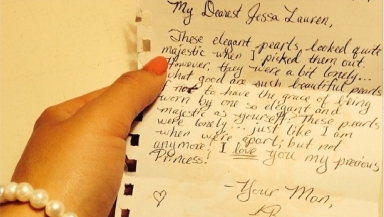 My Dearest Jessa Lauren,
These elegant pearls looked quite
majestic when I picked them out.
However, they were a bit lonely...
what good are such beautiful pearls
if not to have the grace of being
worn by one so elegant and
majestic as yourself. These pearls
were lonely... just like I am
when we're apart; but not
anymore! I love you my precious
Princess!
-Your Man,